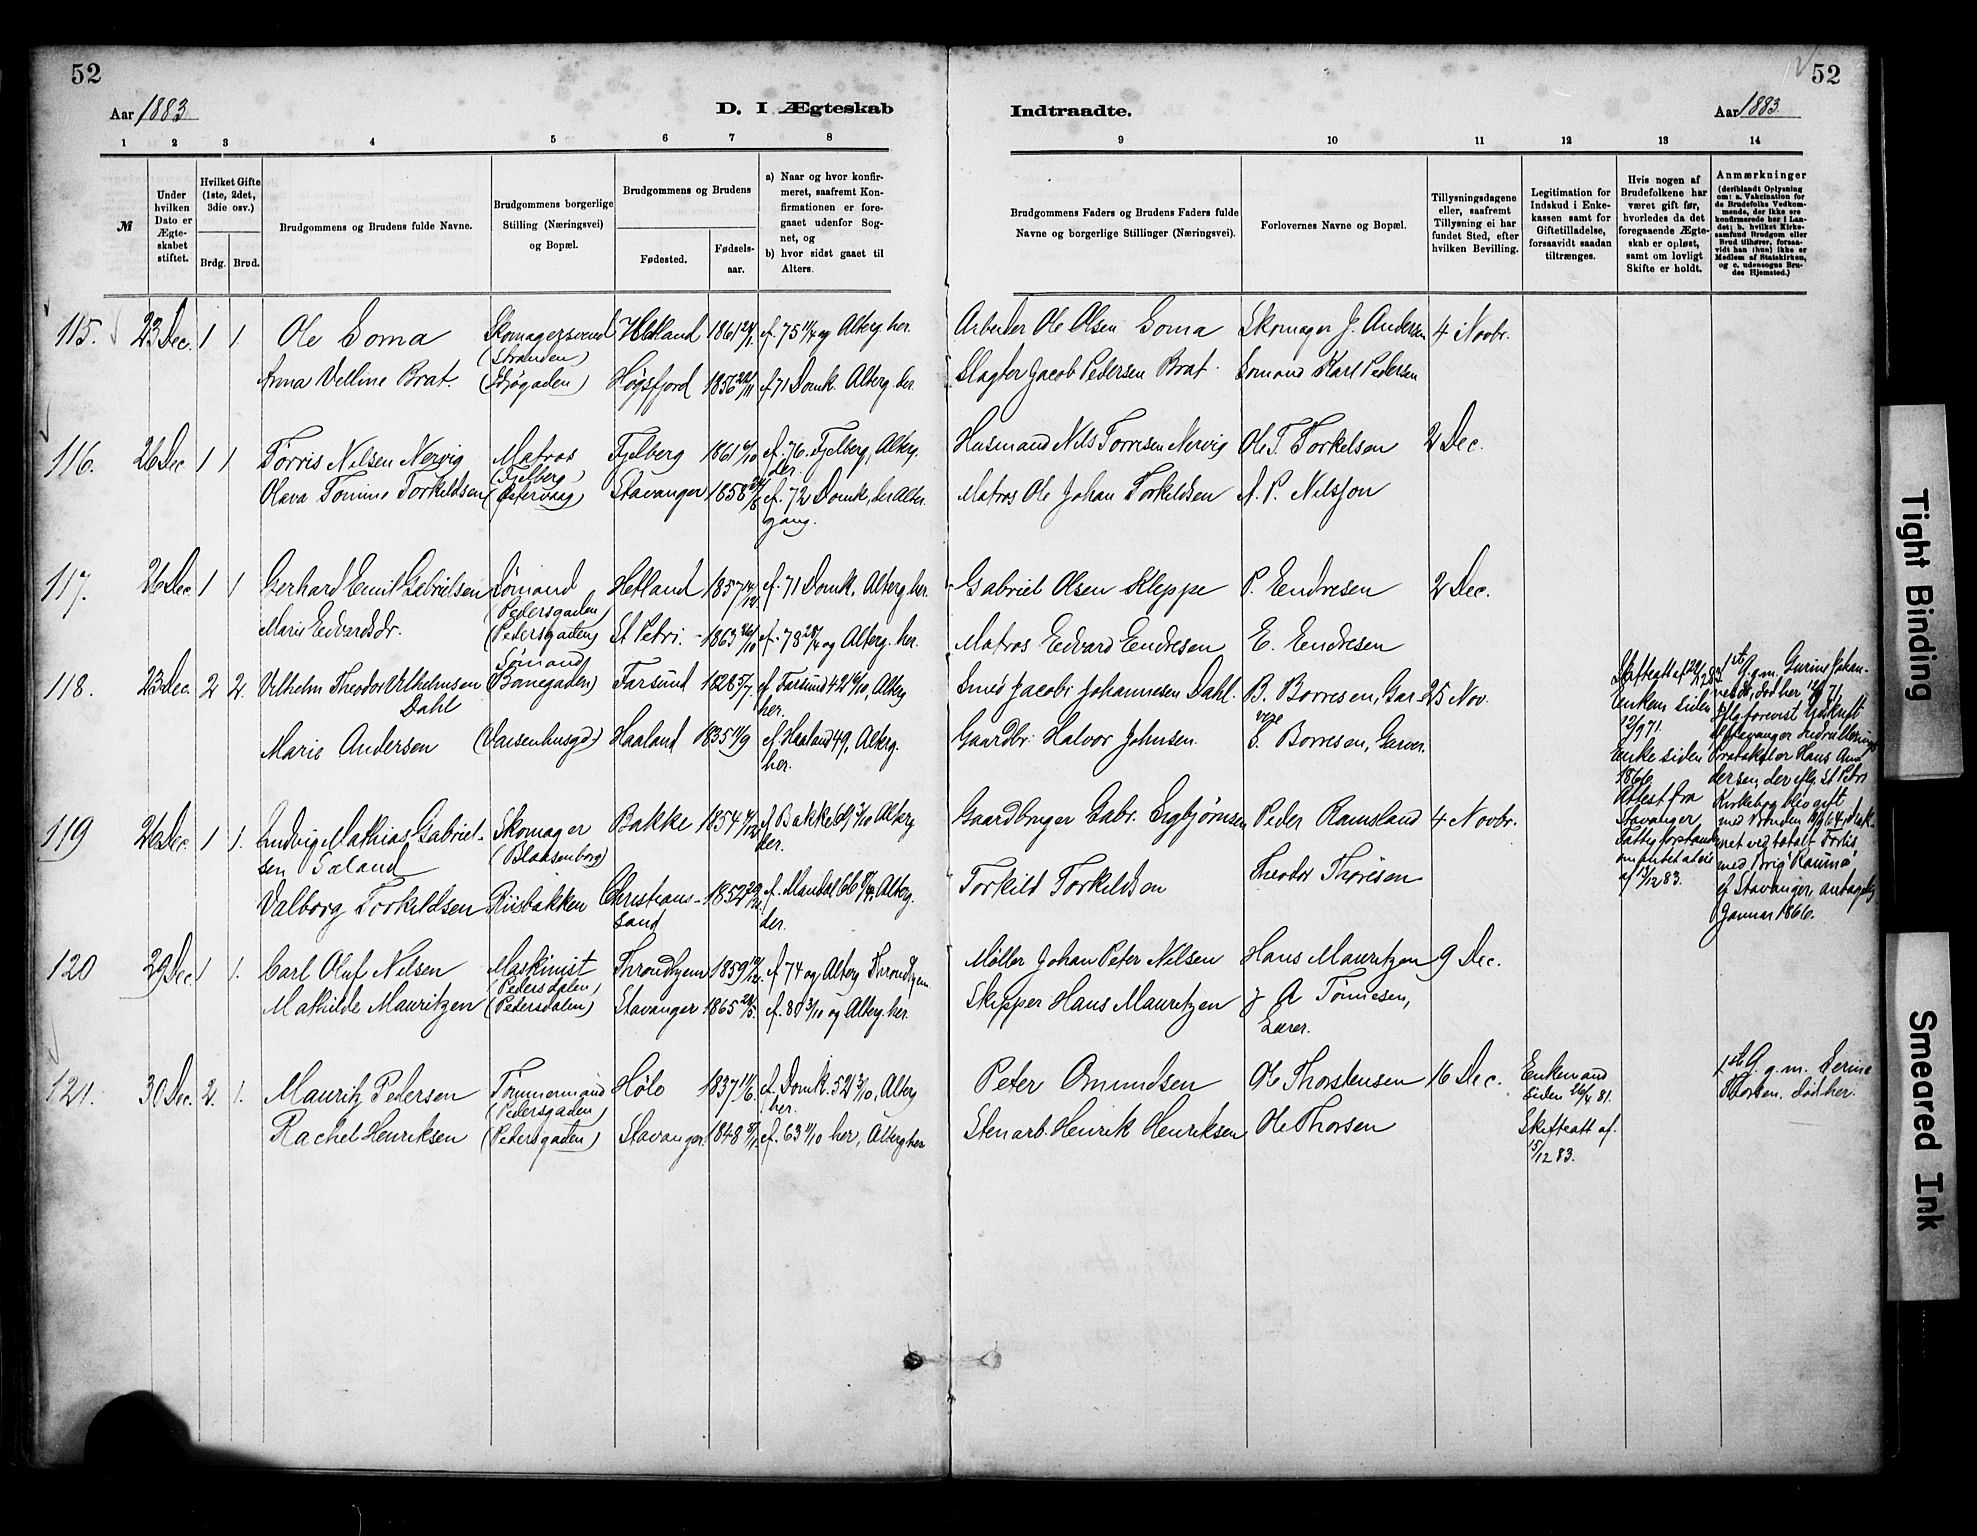 52
Aar 1883.
D. I Ægteskab
1 2 3 4 5 6 7 8
№
Under hvilken Dato er Ægteskabet stiftet.
Hvilket Gifte (1ste, 2det, 3die osv.)
Brdg. Brud.
Brudgommens og Brudens fulde Navne.
Brudgommens borgerlige Stilling (Næringsvei) og Bopæl.
Brudgommens og Brudens
Fødested.
Fødselsaar.
a) Naar og hvor konfirmeret, saafremt Konfirmationen er foregaaet udenfor Sognet, og
b) hvor sidst gaaet til Alters.
115. 23 Dec. 1 1. Ole Soma Skomagersvend Hetland 1861 24/1. cf. 75 11/4 og Alterg. her.
(Stranden)
Anna Velline Brat. (Søgaden) Høgsfjord 1856 22/11 cf 71 Domk. Alterg. her.
116. 26 Dec 1 1. Tørris Nilsen Nervig Matros Fjelberg 1861 6/10 cf. 76. Fjelberg, Alterg. her.
(Fjelberg)
Olava Tomine Torkildsen (Østervaag) Stavanger 1858 cf. 72 Domk, her Altergang.
117. 26 Dec 1 1 Gerhard Emil Gabrielsen Sømand Hetland 1857 14/12. cf. 71 Domk, Alterg. her.
Pedersgaden
Marie Edvardsdr. (Pedersgaden) St Petri. 1863 26/10 cf. 78 28/4 og Alterg. her.
Sømand
118. 23 Dec. 2 2. Vilhelm Theodor Vilhelmsen Dahl (Bornegaden) Farsund 1828 5/7. cf Farsund 42 16/10, Alterg her.
Marie Andersen (Vaisenhusgd.) Haaland 1835 11/9 cf Haaland 49, Alterg. her.
119 26 Dec. 1 1. Ludvig Mathias Gabrielsen Saland Skomager Bakke 1854 cf Bakke 69 3/10 Alterg her.
(Blaasenborg)
Valborg Torkildsen Riisbakken Christianssand 1857 cf. Mandal 66, Alterg. her.
120 29 Dec. 1 1. Carl Oluf Nilsen Maskinist Throndhjem 1859 cf. 74 og Alterg Throndhjem
(Pedersdalen,
Mathilde Mauritzen (Pedersdalen) Stavanger 1865 cf. 80 3/10 og Alterg. her.
121. 30 Dec. 2. 1. Mauritz Pedersen Tømmermand Høle 1837 11/6. cf. Domk. 52 3/10, Alterg her.
(Pedersgaden)
Rachel Henriksen (Pedersgaden) Stavanger. 1848 cf. 63 11/10 her, Alterg her
52
Indtraadte.
Aar 1883.
9 10 11 12 13 14
Brudgommens Faders og Brudens Faders fulde Navne og borgerlige Stillinger (Næringsvei).
Forlovernes Navne og Bopæl.
Tillysningsdagene eller, saafremt Tillysning ei har fundet Sted, efter hvilken Bevilling.
Legitimation for Indskud i Enkekassen samt for Giftetilladelse, forsaavidt saadan tiltrænges.
Hvis nogen af Brudefolkene har været gift før, hvorledes da det foregaaende Ægteskab er opløst, samt om lovligt Skifte er holdt.
Anmærkninger
(deriblandt Oplysning om: a. Vakcination for de Brudefolks Vedkommende, der ikke ere konfirmerede her i Landet; b. hvilket Kirkesamfund Brudgom eller Brud tilhører, forsaavidt han (hun) ikke er Medlem af Statskirken, og c. udensogns Brudes Hjemsted.)
Arbeider Ole Olsen Soma Skomager J. Andersen 4 Novbr.
Slagter Jacob Pedersen Brat. Sømand Karl Pedersen
Husmand Nils Tørresen Nervig Ole T. Torkelsen 2 Dec.
Matros Ole Johan Torkildsen A. P. Nilsson
Gabriel Olsen Kleppe P. Endresen 2 Dec.
Matros Edvard Endresen E. Endresen
Smed Jacob Johannesen Dahl. B. Borresen, Garver 25 Nov.
Gaardbr: Halvor Johnsen. E. Borresen, Garver.
Skifteatt. af
Enkem. siden 12/9 71.
Enke siden 1866
Attest fra Stavanger Fattigforstand om intet at eie af 13/12 83.
1ste G. g. m. Gurine Johannesdr, død her 12/9 71,
Ifølge forevist Udskrift af Stavanger Indrulleringsprotokol er Hans Andersen, der efter St Petri Kirkebog blev gift med Bruden 64, druknet ved totalt Forlis med Brig "Rauma" af Stavanger, antagelig Januar 1866.
Gaardbruger Gabr. Eigbjørnsen Peder Ramsland 4 Novbr.
Torkild Torkildsen Theodor Thorsen
Møller Johan Peter Nilsen Hans Mauritzen 9 Dec.
Skipper Hans Mauritzen A Tønnesen, Lærer.
Peter Omundsen Ole Thorstensen 16 Dec. Enkemand siden 81. 1ste G. g. m. Serine Thorsen, død her.
Stenarb. Henrik Henriksen Ole Thorsen Skifteatt af. 5/12 83.
Tight Binding
Smeared Ink